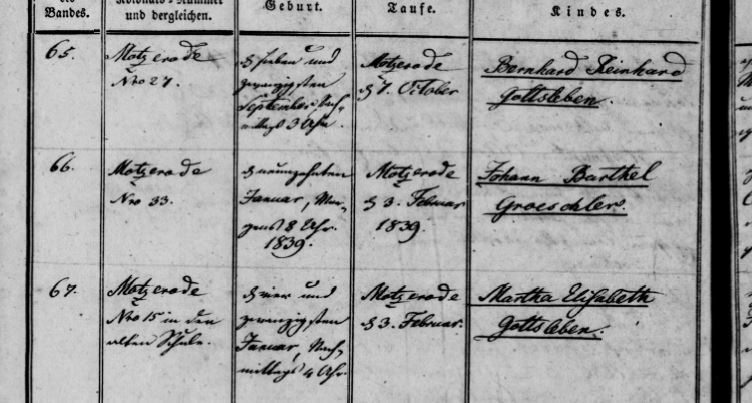 des
Bandes.
Kolonats-Nummer
und dergleichen.
Geburt.
Taufe.
Kindes.
65.
Motzerode
Nro 27.
d sieben und
zwanzigsten
September Nach-
mittags 3 Uhr.
Motzerode
d 7. October
Bernhard Reinhard
Gottsleben.
66.
Motzerode
Nro 33.
d neunzehnten
Januar, Mor-
gens 8 Uhr.
1839.
Motzerode
d 3. Februar
1839.
Johann Barthel
Groeschler.
67.
Motzerode
Nro 15 in der
alten Schule.
d vier und
zwanzigsten
Januar, Nach-
mittags 4 Uhr.
Motzerode
d 3. Februar.
Martha Elisabeth
Gottsleben.